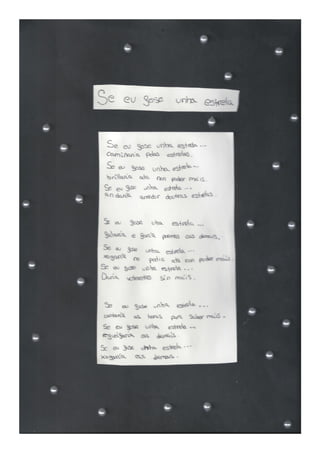 Se eu fose unha estrela
Se eu fose unha estrela...
caminaria polas estrelas.
Se eu fose unha estrela...
brillaria ata non poder mais.
Se eu fose unha estrela...
andaria arredor doutras estrelas.
Se eu fose uha estrela...
a os demais.
Se eu fose unha estrela...
xogaria no patio ata non poder mais
Se eu fose unha estrela...
Daria sin mais.
Se eu fose unha estrela...
contaria as horas para saber mais.
Se eu fose unha estrela...
os demais
Se eu fose unha estrela...
xogaria cos demais.